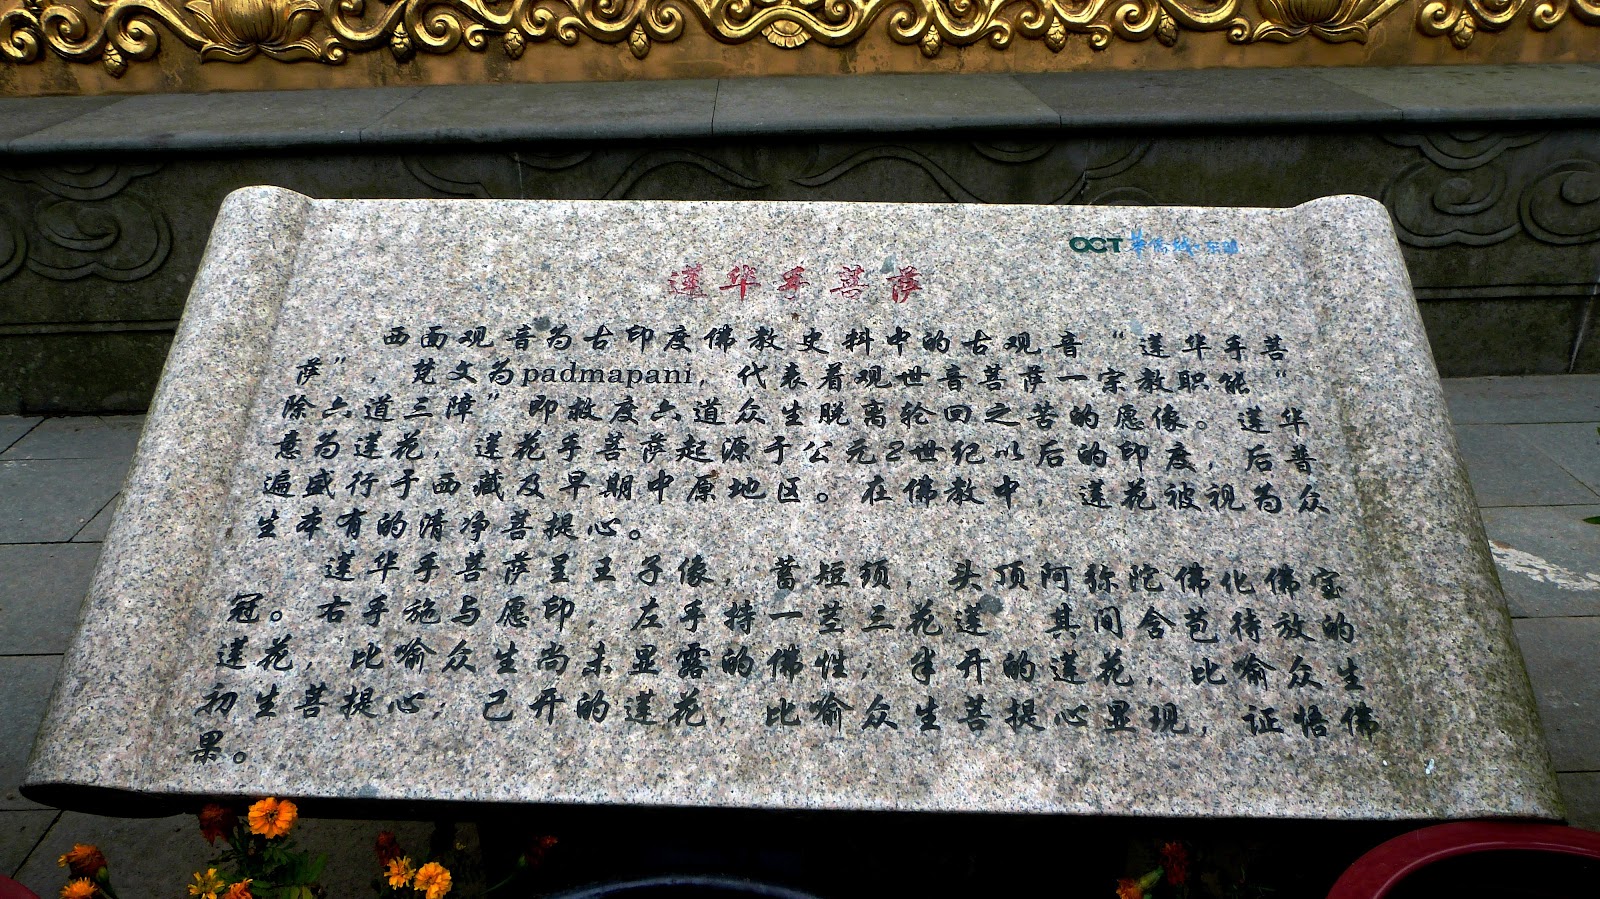 OCT 华侨城·东部
莲华手菩萨
西面观音为古印度佛教史料中的古观音“莲华手菩
萨”，梵文为padmapani，代表着观世音菩萨一宗教职能“
除六道三障”即救度六道众生脱离轮回之苦的愿像。莲华
意为莲花，莲花手菩萨起源于公元2世纪以后的印度，后普
遍盛行于西藏及早期中原地区。在佛教中，莲花被视为众
生本有的清净菩提心。
莲华手菩萨呈王子像，蓄短须，头顶阿弥陀佛化佛宝
冠。右手施与愿印，左手持一茎三花莲 其间含苞待放的
莲花，比喻众生尚未显露的佛性；半开的莲花，比喻众生
初生菩提心；己开的莲花，比喻众生菩提心显现，证悟佛
果。